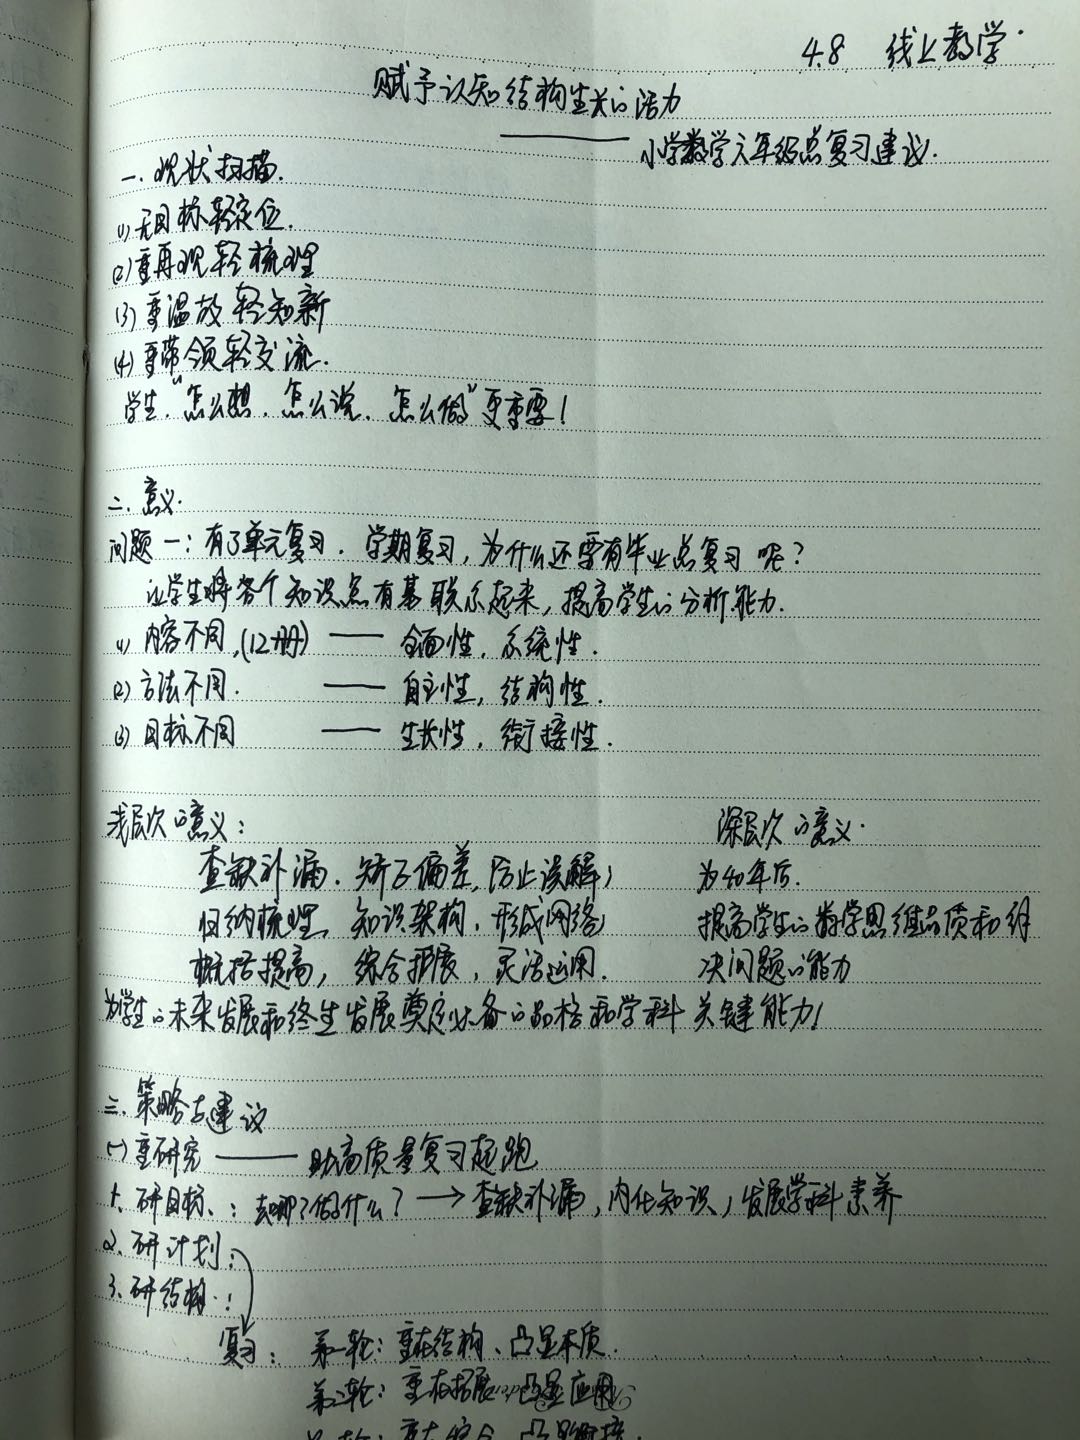 4.8 线上教学.
赋予认知结构生长的活力
—— 小学数学六年级总复习建议.
一. 现状扫描.
(1) 无目标轻定位.
(2) 重再现轻梳理
(3) 重温故轻知新
(4) 重带领轻交流.
学生“怎么想、怎么说、怎么做”更重要!
二. 意义.
问题一: 有了单元复习. 学期复习, 为什么还要有毕业总复习呢?
让学生将各个知识点有基联系起来, 提高学生的分析能力.
(1) 内容不同,(12册) —— 全面性. 系统性.
(2) 方法不同. —— 自主性, 结构性.
(3) 目标不同 —— 生长性, 衔接性.
浅层次的意义: 深层次的意义.
查缺补漏. 矫正偏差, 防止误解; 为40年后.
归纳梳理, 知识架构, 形成网络; 提高学生的数学思维品质和解
概括提高, 综合拓展, 灵活运用. 决问题的能力
为学生的未来发展和终生发展奠定必备的品格和学科关键能力!
三. 策略与建议
(一) 重研究 —— 助高质量复习起跑
1. 研目标: 去哪?做什么? → 查缺补漏, 内化知识, 发展学科素养
2. 研计划:
3. 研结构:
复习: 第一轮: 重在结构、凸显本质.
第二轮: 重在拓展 凸显应用